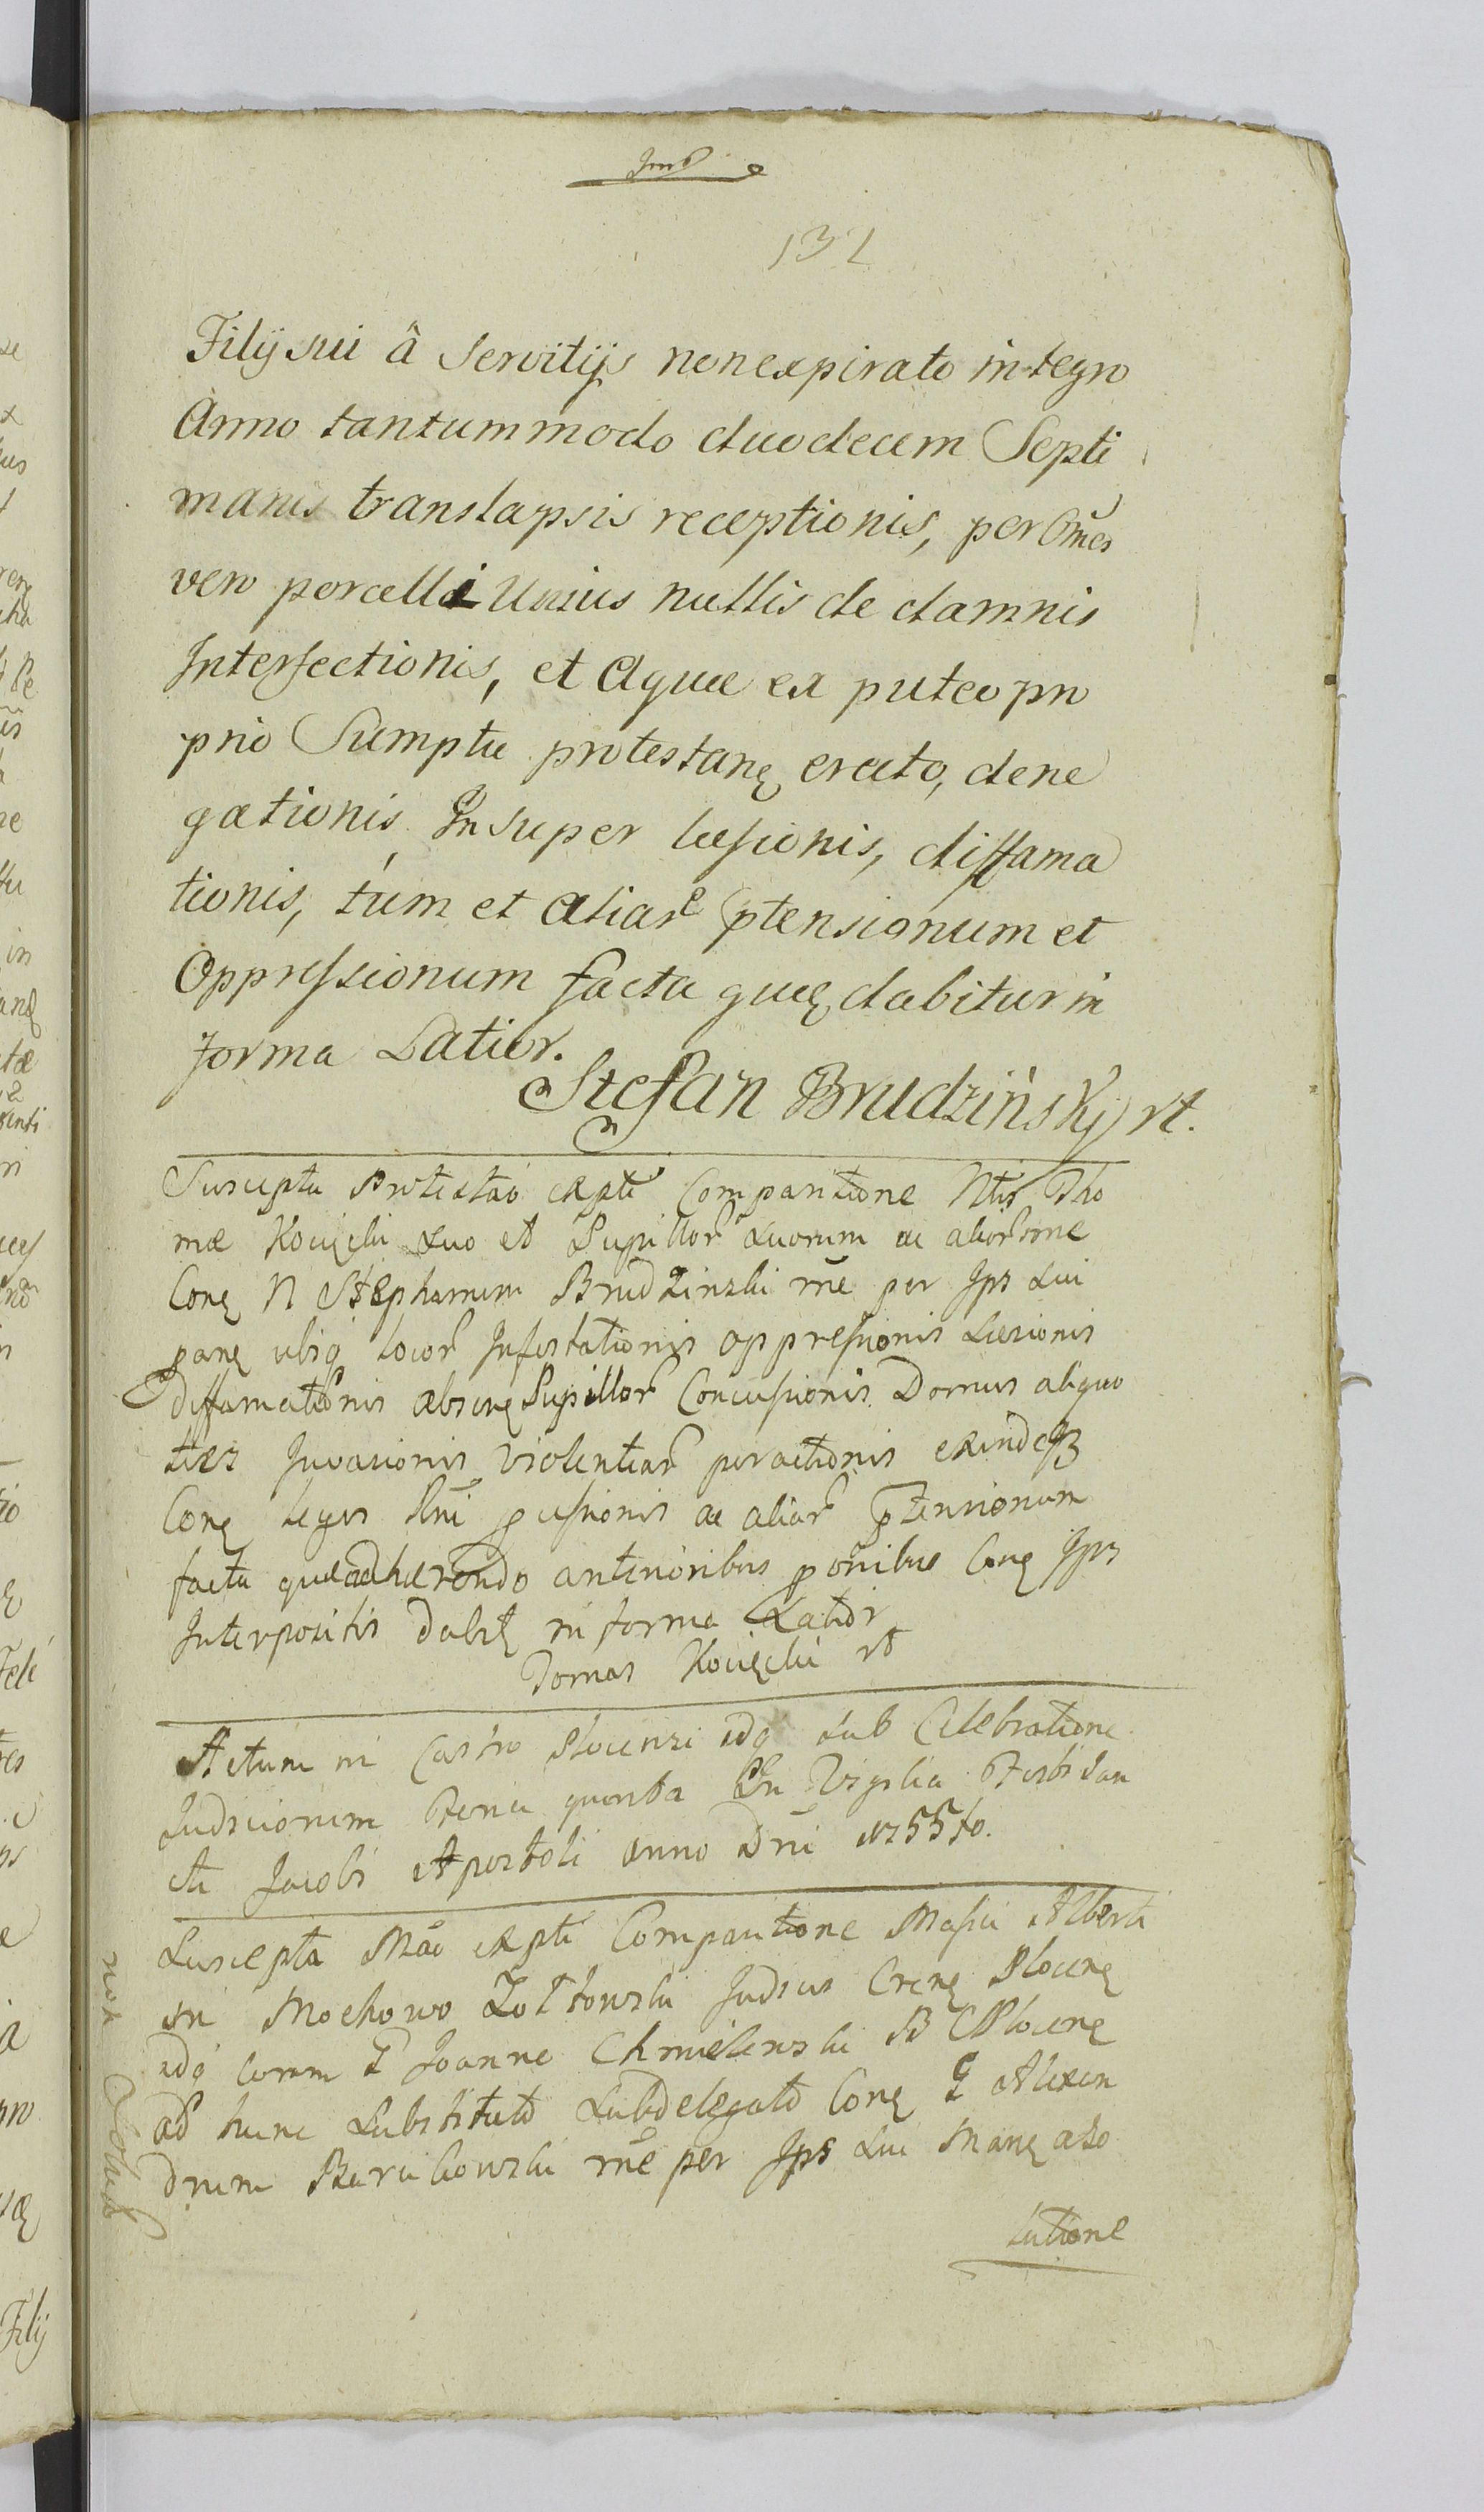 132
Filij sui â Servitijs non expirato integro
Anno tantummodo duodecem Septi
manis translapsis receptionis, per Omẽs
vero porcelli Unius nullis de damnis
Interfectionis, et Aquæ ex puteo pro
prio Sumptu protestanẹ erecto, dene
gationis Insuper læsionis, diffama
tionis, túm et aliarͤ ptensionum et
Oppressionum facta quæ dabitur in
forma Latior.
Stefan Brudzińskÿ rt.
Suscepta Protestaõ expte Comparitione Ntis Tho
mæ Kocięcki Suo et Pupillor̃ Suorum ac alior̃ nne
Conẹ N Stephanum Brudzinski rñe per Ips Sui
panẹ ubiq locor̃ Infestationis oppressionis Læsionis
Diffamationis Pupillor̃ Concussionis Domus aliquo
ties Invasionis violentiar̃ peractionis exindeqz
Conẹ leges Rni pcussionis ac aliar̃ ptensionum
facta quæ adhærendo anterioribus põnibus Conẹ Ips
Interpositis dabit in forma Latior
Tomas Kocięcki rt
Actum in Castro Plocensi idq sub Celebratione
Judiciorum Feria quarta In Vigilia Festi San
cti Jacobi Apostoli anno Dni 1755to.
Suscepta Mão expte Comparitione Mafici Alberti
in Mochowo Żołtowski Judicis Plocenẹ
idq coram G Joanne Chmielewski B C Plocenẹ
ad hunc Substituto Subdelegato Conẹ G Alexan
drum rñe per Ips Sui Manẹ abo
lutione